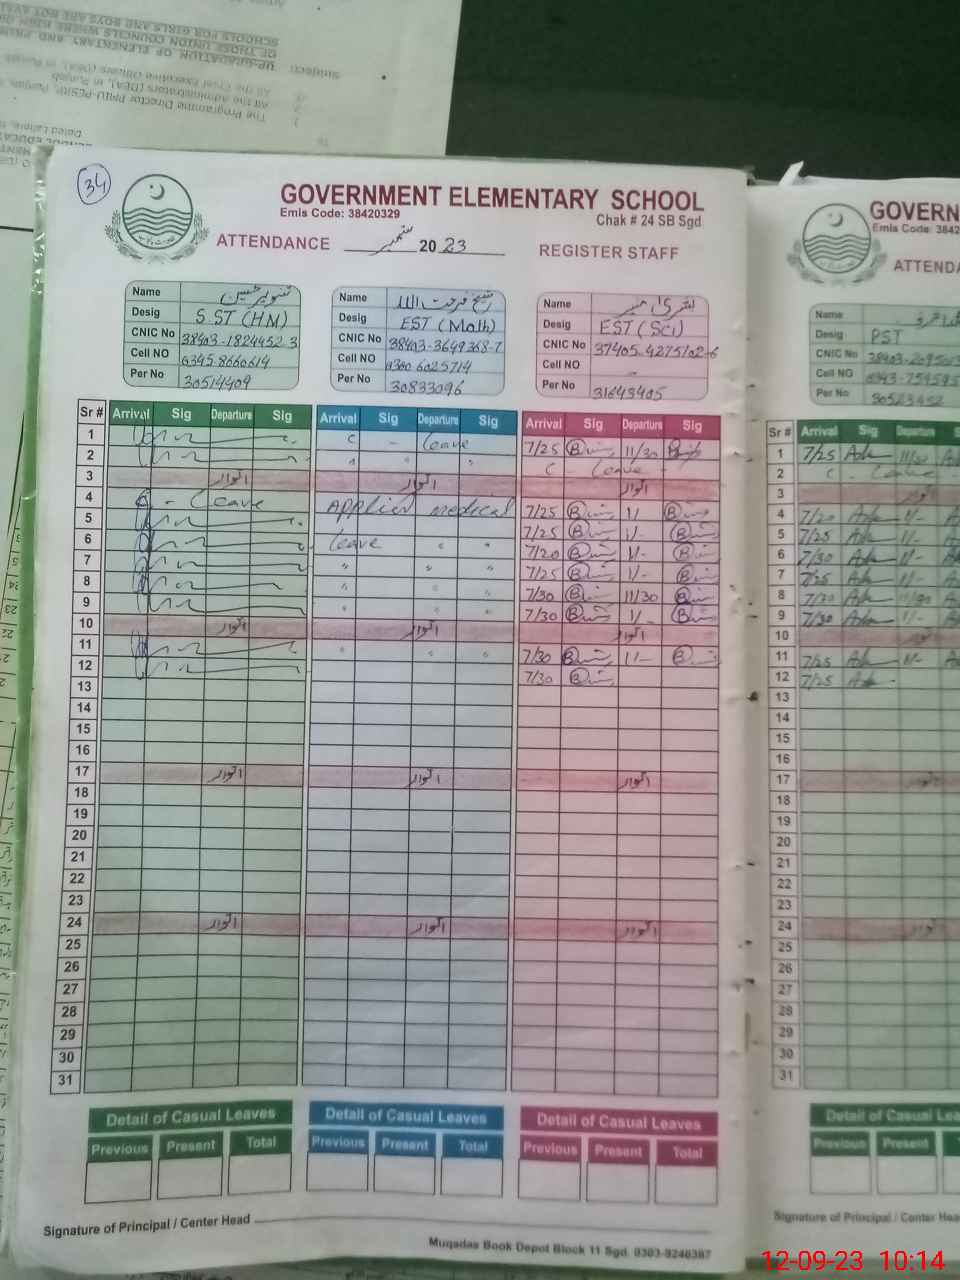 The Programme Director PMIU-PESRP, Punjab
All the Administrators (DEA), in Punjab
All the Chief Executive Officers (DEA), in Punjab
Subject: UP-GRADATION OF ELEMENTARY AND
OF THOSE UNION COUNCILS WHERE HIGH
SCHOOLS FOR GIRLS AND BOYS ARE NOT
34
GOVERNMENT ELEMENTARY SCHOOL
Emis Code: 38420329
Chak # 24 SB Sgd
ATTENDANCE ستمبر 2023 REGISTER STAFF
Name تنویر حسین
Desig S.ST (HM)
CNIC No 38403-1824452-3
Cell NO 0345-8660614
Per No 30514409
Name شیخ فرحت اللہ
Desig EST (Math)
CNIC No 38403-3649368-7
Cell NO 0300 6025714
Per No 30833096
Name بشریٰ
Desig EST (Sci)
CNIC No 37405-4275102-6
Cell NO -
Per No 31643405
Sr # Arrival Sig Departure Sig Arrival Sig Departure Sig Arrival Sig Departure Sig
1 C - leave 7/25 11/30
2 " " " C - Leave -
3 اتوار اتوار اتوار
4 - Leave Applied medical 7/25 1/-
5 7/25 1/-
6 leave " " 7/20 1/-
7 " " " 7/25 1/-
8 " " " 7/30 11/30
9 " " " 7/30 1/-
10 اتوار اتوار اتوار
11 " " " 7/30 1/-
12 7/30
13
14
15
16
17 اتوار اتوار اتوار
18
19
20
21
22
23
24 اتوار اتوار اتوار
25
26
27
28
29
30
31
Detail of Casual Leaves Detail of Casual Leaves Detail of Casual Leaves
Previous Present Total Previous Present Total Previous Present Total
Signature of Principal / Center Head
Muqadas Book Depot Block 11 Sgd. 0303-9240387
GOVERN
Emis Code: 3842
ATTENDA
Name
Desig PST
CNIC No
Cell NO
Per No
Sr # Arrival Sig Departure
1 7/25
2 C - Leave
3 اتوار
4 7/20 1/-
5 7/25 1/-
6 7/30 1/-
7 7/25 1/-
8 7/30 11/30
9 7/30 1/-
10 اتوار
11 7/25 1/-
12 7/25
13
14
15
16
17 اتوار
18
19
20
21
22
23
24 اتوار
25
26
27
28
29
30
31
Detail of Casual Lea
Previous Present
Signature of Principal / Center Hea
12-09-23 10:14